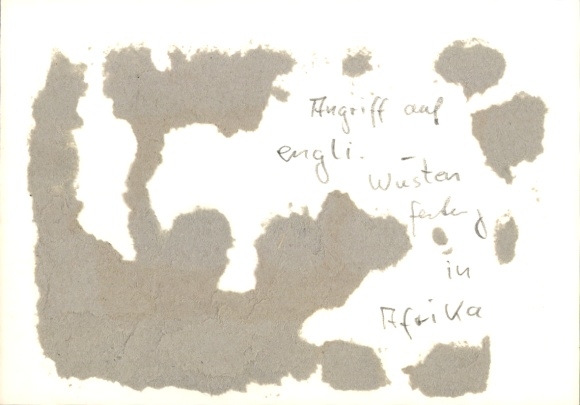 Angriff auf
engli.
Wüsten
festung
in
Afrika